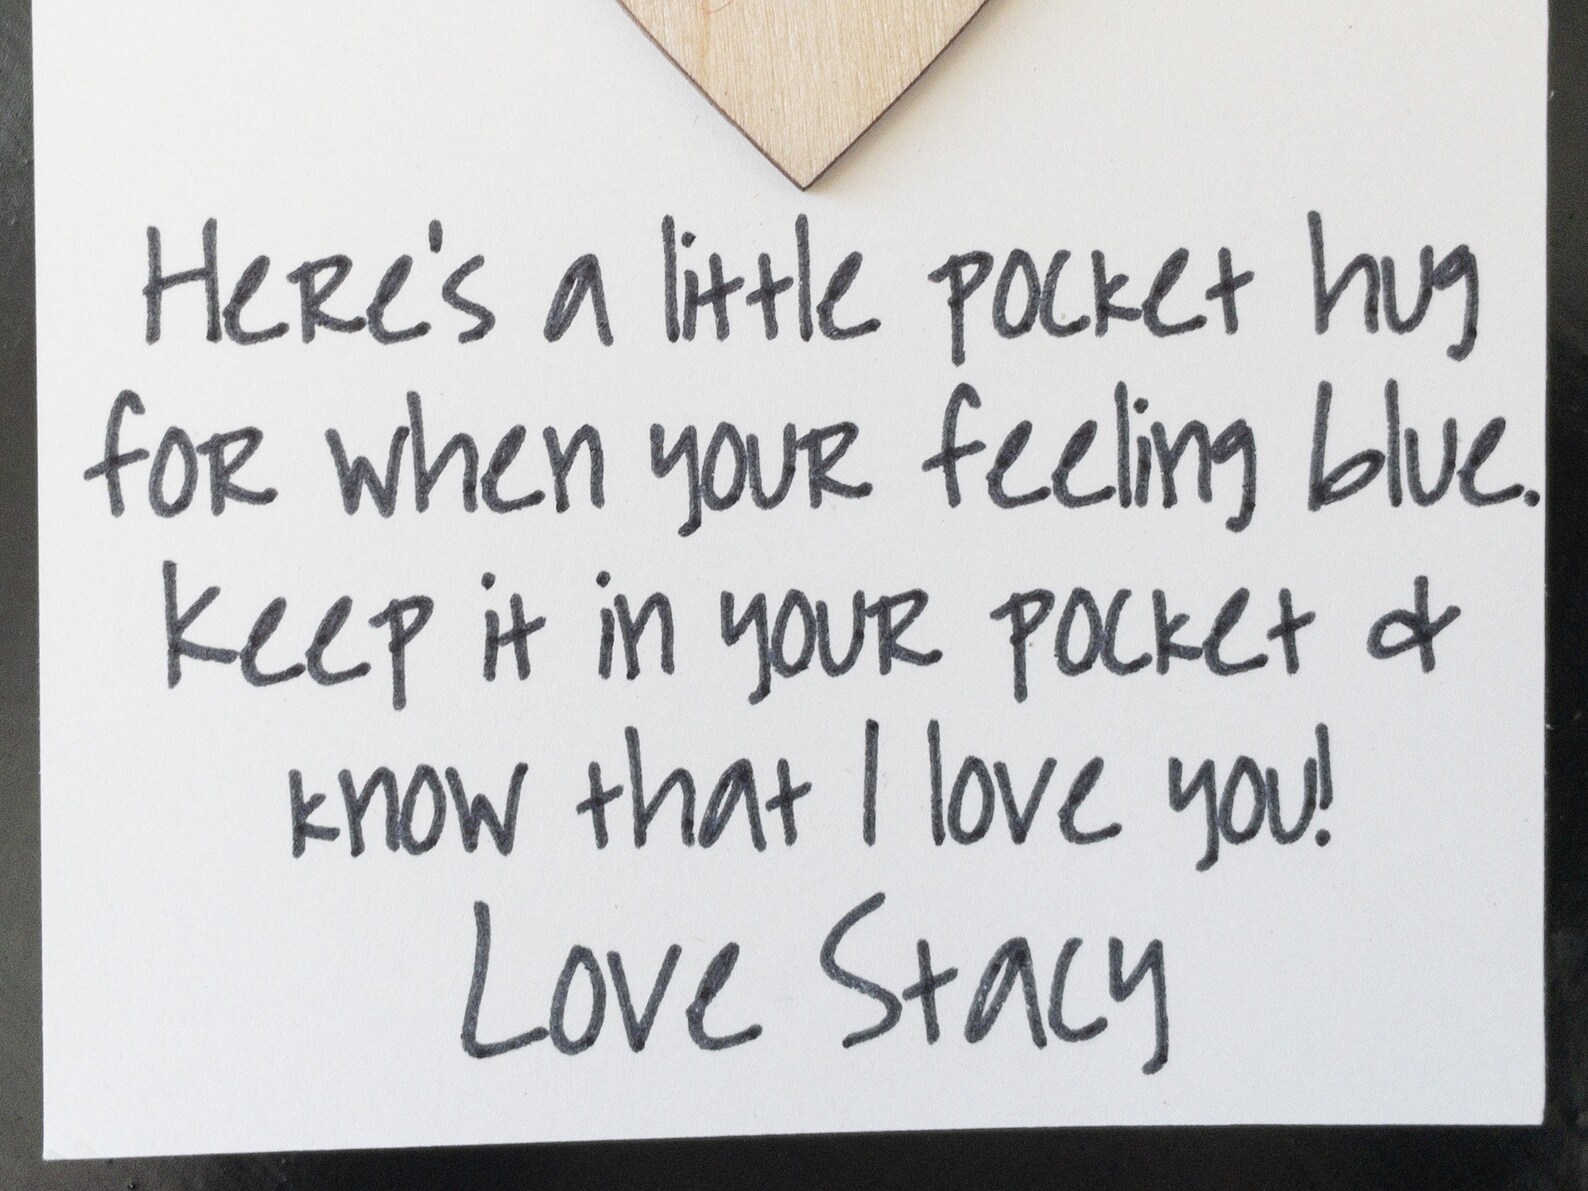 Here's a little pocket hug
for when your feeling blue.
Keep it in your pocket &
know that I love you!
Love Stacy